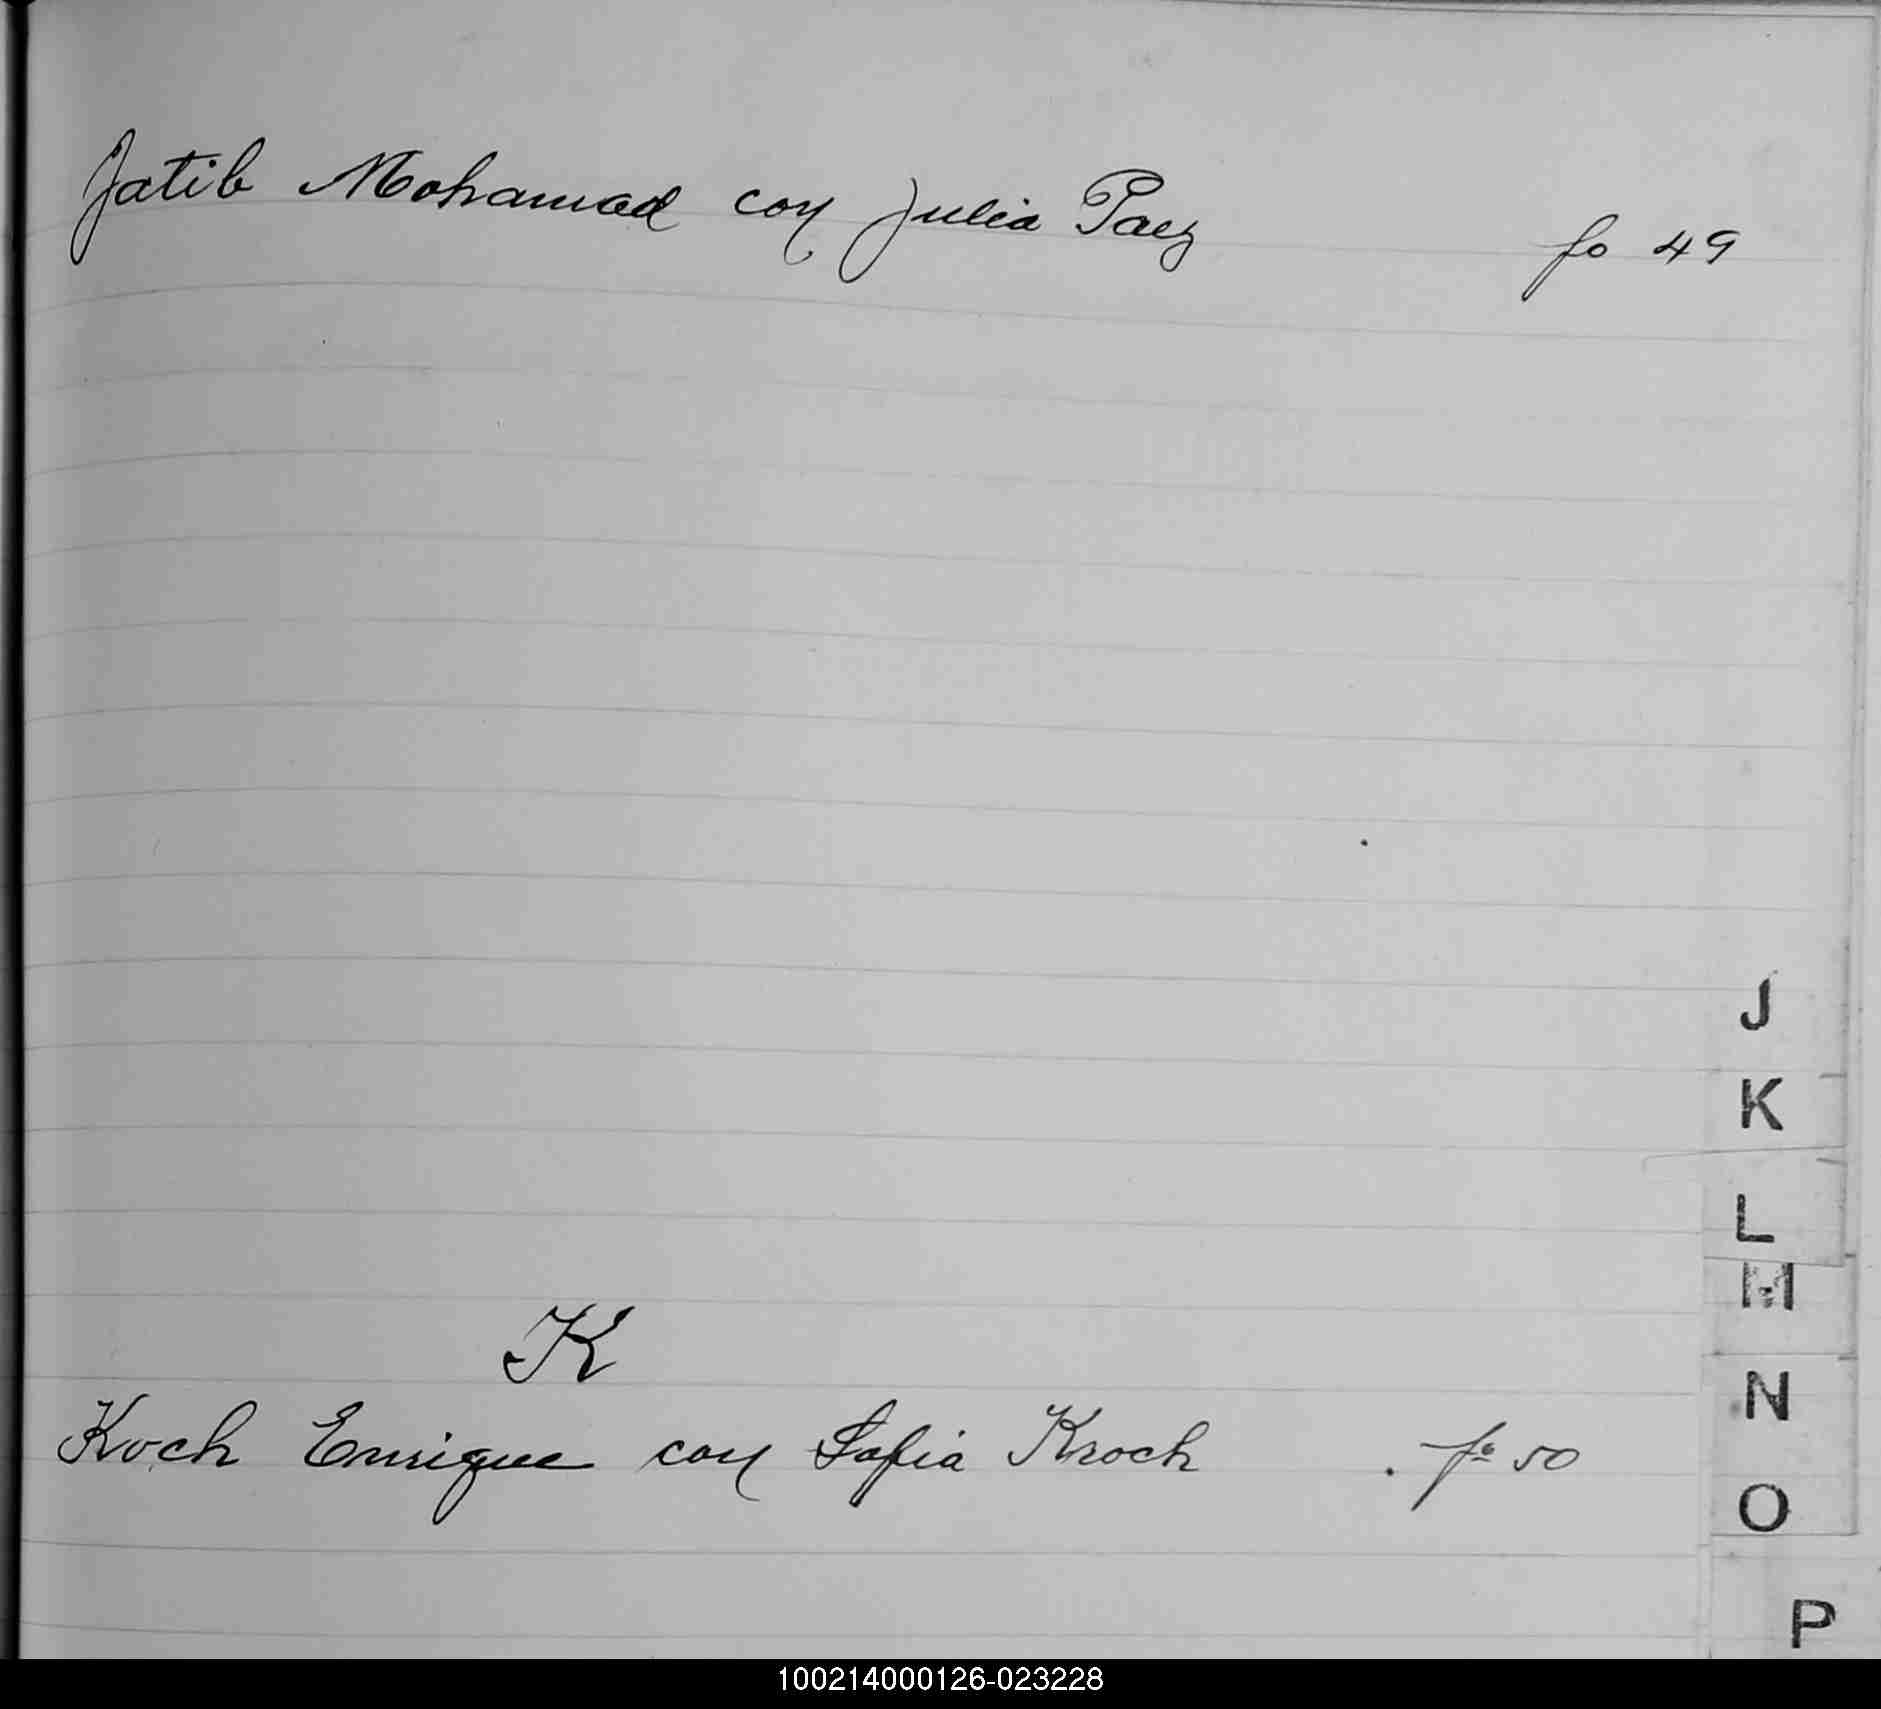 Jatib Mohamad con Julia Paez fo 49
J
K
L
M
K
N
Koch Enrique con Sofia Kroch . fº 50
O
P
100214000126-023228